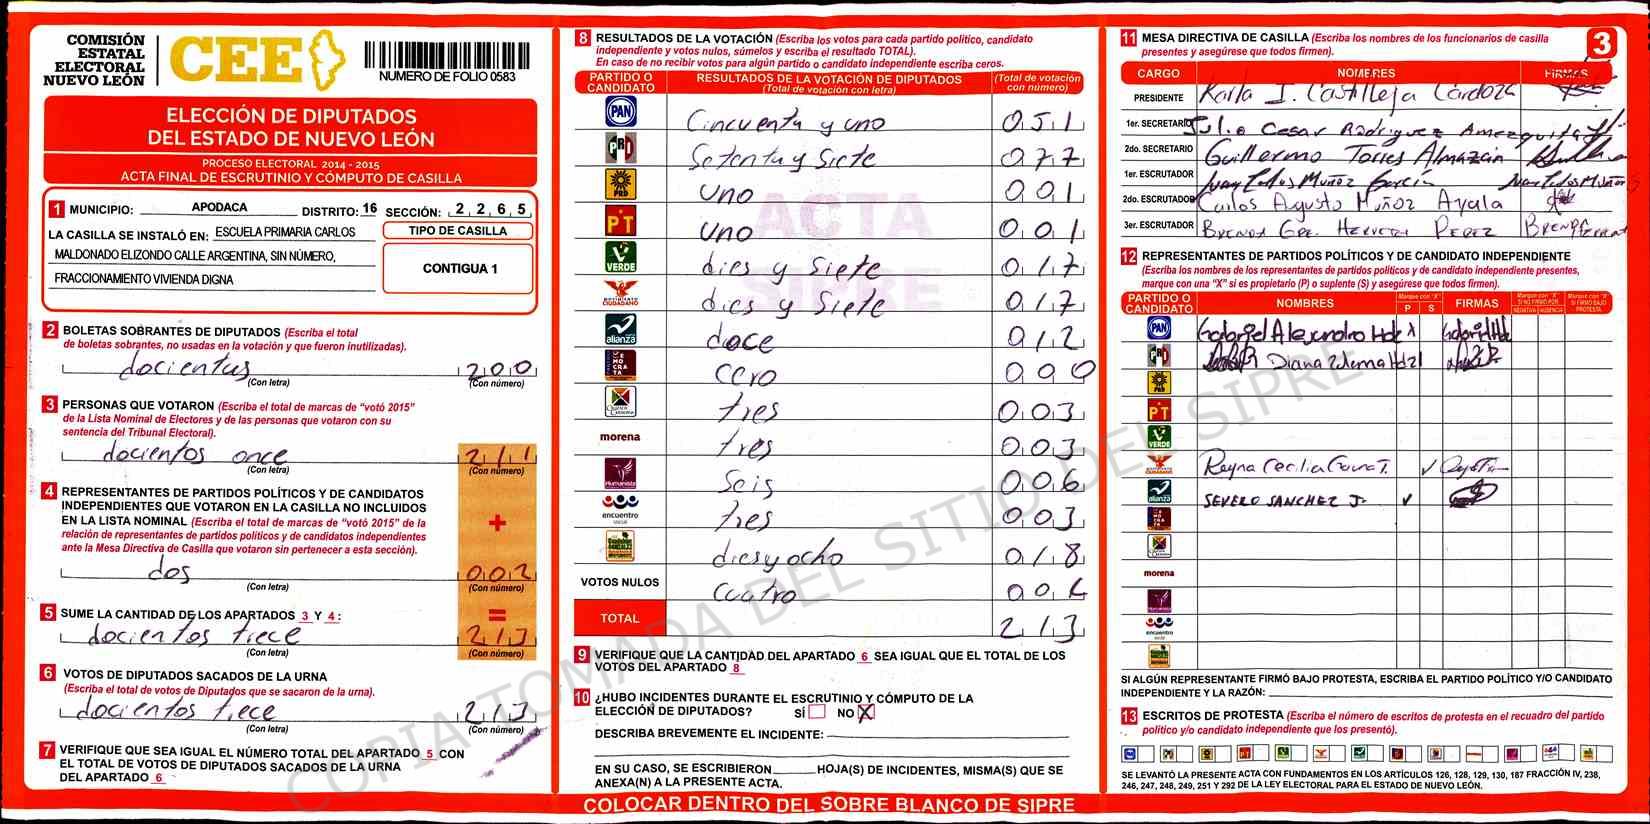 COMISIÓN
ESTATAL
ELECTORAL
NUEVO LEÓN
CEE
NUMERO DE FOLIO 0583
ELECCIÓN DE DIPUTADOS
DEL ESTADO DE NUEVO LEÓN
PROCESO ELECTORAL 2014 - 2015
ACTA FINAL DE ESCRUTINIO Y CÓMPUTO DE CASILLA
1 MUNICIPIO: APODACA DISTRITO: 16 SECCIÓN: 2 2 6 5
LA CASILLA SE INSTALÓ EN: ESCUELA PRIMARIA CARLOS
MALDONADO ELIZONDO CALLE ARGENTINA, SIN NÚMERO,
FRACCIONAMIENTO VIVIENDA DIGNA
TIPO DE CASILLA
CONTIGUA 1
2 BOLETAS SOBRANTES DE DIPUTADOS (Escriba el total
de boletas sobrantes, no usadas en la votación y que fueron inutilizadas).
docientus 200
(Con letra) (Con número)
3 PERSONAS QUE VOTARON (Escriba el total de marcas de “votó 2015”
de la Lista Nominal de Electores y de las personas que votaron con su
sentencia del Tribunal Electoral).
docientos once 211
(Con letra) (Con número)
4 REPRESENTANTES DE PARTIDOS POLÍTICOS Y DE CANDIDATOS
INDEPENDIENTES QUE VOTARON EN LA CASILLA NO INCLUIDOS
EN LA LISTA NOMINAL (Escriba el total de marcas de “votó 2015” de la
relación de representantes de partidos políticos y de candidatos independientes
ante la Mesa Directiva de Casilla que votaron sin pertenecer a esta sección).
+
dos 002
(Con letra) (Con número)
5 SUME LA CANTIDAD DE LOS APARTADOS 3 Y 4: =
docientos trece 213
(Con letra) (Con número)
6 VOTOS DE DIPUTADOS SACADOS DE LA URNA
(Escriba el total de votos de Diputados que se sacaron de la urna).
docientos trece 213
(Con letra) (Con número)
7 VERIFIQUE QUE SEA IGUAL EL NÚMERO TOTAL DEL APARTADO 5 CON
EL TOTAL DE VOTOS DE DIPUTADOS SACADOS DE LA URNA
DEL APARTADO 6
8 RESULTADOS DE LA VOTACIÓN (Escriba los votos para cada partido político, candidato
independiente y votos nulos, súmelos y escriba el resultado TOTAL).
En caso de no recibir votos para algún partido o candidato independiente escriba ceros.
PARTIDO O CANDIDATO RESULTADOS DE LA VOTACIÓN DE DIPUTADOS (Total de votación con letra) (Total de votación con número)
PAN Cincuenta y uno 051
PRD Setenta y Siete 077
PRD uno 001
PT uno 001
VERDE dies y Siete 017
MOVIMIENTO CIUDADANO dies y Siete 017
alianza doce 012
DEMOCRATA cero 000
tres 003
morena tres 003
Humanista Seis 006
encuentro social tres 003
dies y ocho 018
VOTOS NULOS cuatro 004
TOTAL 213
ACTA
SIPRE
9 VERIFIQUE QUE LA CANTIDAD DEL APARTADO 6 SEA IGUAL QUE EL TOTAL DE LOS
VOTOS DEL APARTADO 8
10 ¿HUBO INCIDENTES DURANTE EL ESCRUTINIO Y CÓMPUTO DE LA
ELECCIÓN DE DIPUTADOS? SÍ NO X
DESCRIBA BREVEMENTE EL INCIDENTE:
EN SU CASO, SE ESCRIBIERON HOJA(S) DE INCIDENTES, MISMA(S) QUE SE
ANEXA(N) A LA PRESENTE ACTA.
COLOCAR DENTRO DEL SOBRE BLANCO DE SIPRE
11 MESA DIRECTIVA DE CASILLA (Escriba los nombres de los funcionarios de casilla
presentes y asegúrese que todos firmen).
3
CARGO NOMBRES FIRMAS
PRESIDENTE Karla I. Castilleja Cardoza
1er. SECRETARIO Julio Cesar Rodriguez Amezquita
2do. SECRETARIO Guillermo Torres Almazán
1er. ESCRUTADOR Juan Carlos Muñoz García
2do. ESCRUTADOR Carlos Augusto Muñoz Ayala
3er. ESCRUTADOR Brenda Gpe. Perez Brenda
12 REPRESENTANTES DE PARTIDOS POLÍTICOS Y DE CANDIDATO INDEPENDIENTE
(Escriba los nombres de los representantes de partidos políticos y de candidato independiente presentes,
marque con una “X” si es propietario (P) o suplente (S) y asegúrese que todos firmen).
PARTIDO O CANDIDATO NOMBRES Marque con "X" P S FIRMAS
PAN Gabriel Alejandro Hdz X Gabriel Hdz
PRD Diana
PRD
PT
VERDE
MOVIMIENTO CIUDADANO Reyna Cecilia
alianza SEVERO SANCHEZ J.
morena
encuentro social
SI ALGÚN REPRESENTANTE FIRMÓ BAJO PROTESTA, ESCRIBA EL PARTIDO POLÍTICO Y/O CANDIDATO
INDEPENDIENTE Y LA RAZÓN:
13 ESCRITOS DE PROTESTA (Escriba el número de escritos de protesta en el recuadro del partido
político y/o candidato independiente que los presentó).
SE LEVANTÓ LA PRESENTE ACTA CON FUNDAMENTOS EN LOS ARTÍCULOS 126, 128, 129, 130, 187 FRACCIÓN IV, 238,
246, 247, 248, 249, 251 Y 292 DE LA LEY ELECTORAL PARA EL ESTADO DE NUEVO LEÓN.
COPIA TOMADA DEL SITIO DEL SIPRE